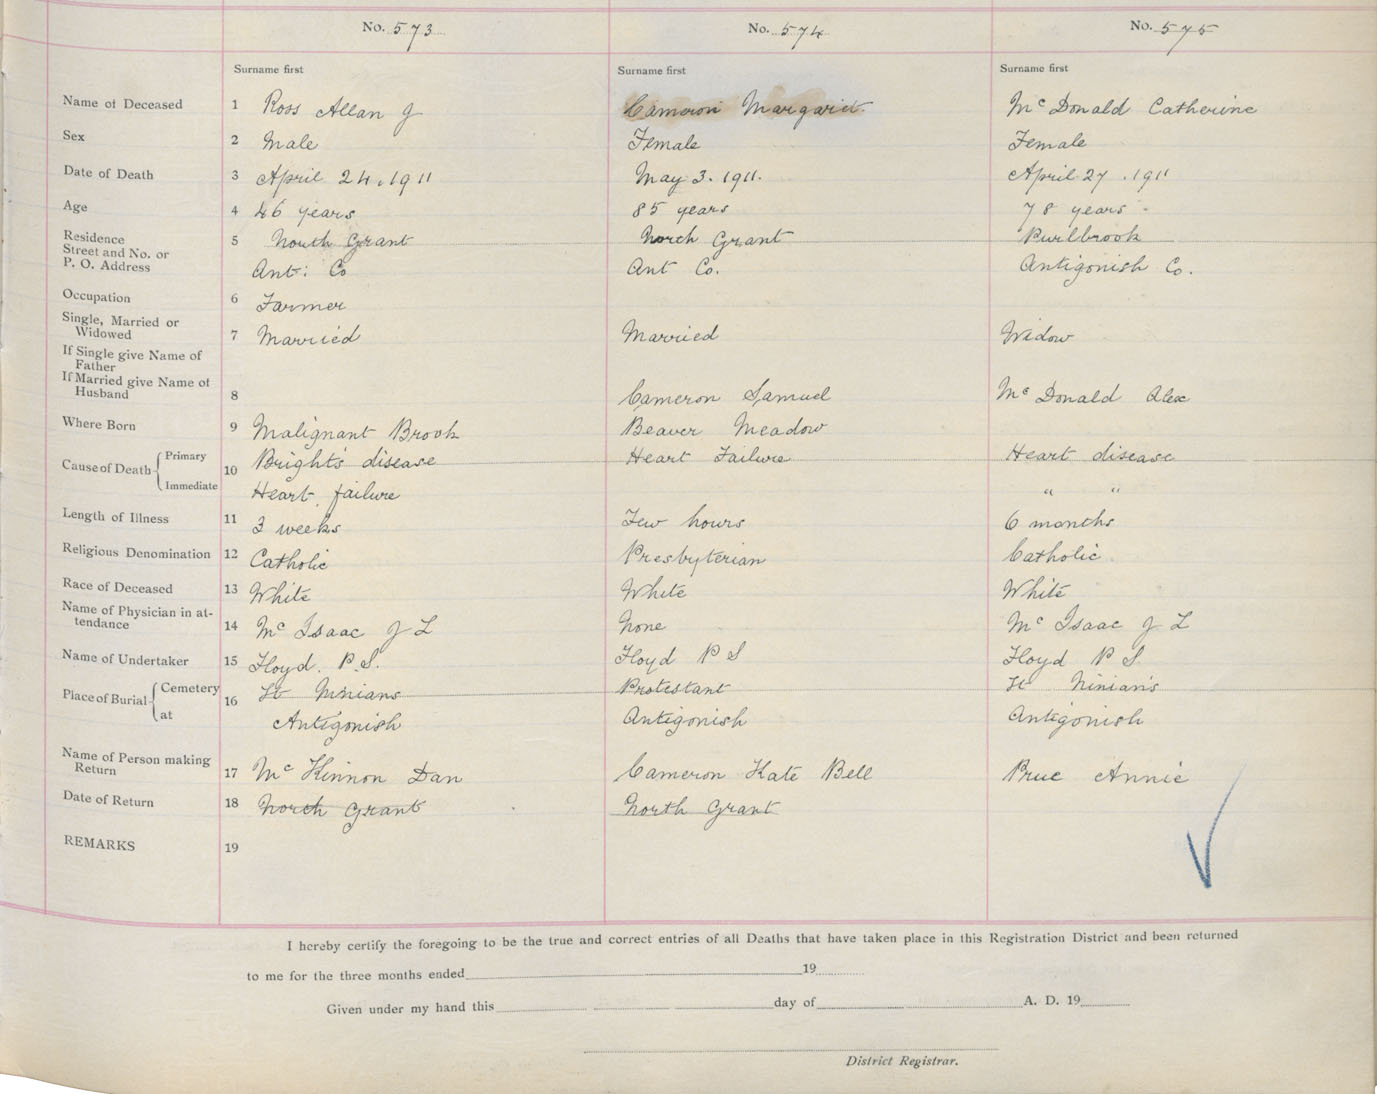 No. 573 No. 574 No. 575
Surname first Surname first Surname first
Name of Deceased 1 Ross Allan J Cameron Margaret. McDonald Catherine
Sex 2 Male Female Female
Date of Death 3 April 24, 1911 May 3. 1911. April 27. 1911
Age 4 46 years 85 years 78 years
Residence
Street and No. or
P. O. Address
5 North Grant North Grant Purlbrook
Ant: Co Ant Co. Antigonish Co.
Occupation 6 Farmer
Single, Married or
Widowed 7 Married Married Widow
If Single give Name of
Father
If Married give Name of
Husband 8 Cameron Samuel McDonald Alex
Where Born 9 Malignant Brook Beaver Meadow
Cause of Death Primary 10 Bright's disease Heart Failure Heart disease
Immediate Heart failure " "
Length of Illness 11 3 weeks Few hours 6 months
Religious Denomination 12 Catholic Presbyterian Catholic
Race of Deceased 13 White White White
Name of Physician in at-
tendance 14 McIsaac J L None McIsaac J L
Name of Undertaker 15 Floyd. P. S. Floyd P S Floyd P S
Place of Burial Cemetery 16 St Ninians Protestant St Ninian's
at Antigonish Antigonish Antigonish
Name of Person making
Return 17 McKinnon Dan Cameron Kate Bell Annie
Date of Return 18 North Grant North Grant
REMARKS 19
I hereby certify the foregoing to be the true and correct entries of all Deaths that have taken place in this Registration District and been returned
to me for the three months ended 19
Given under my hand this day of A. D. 19
District Registrar.